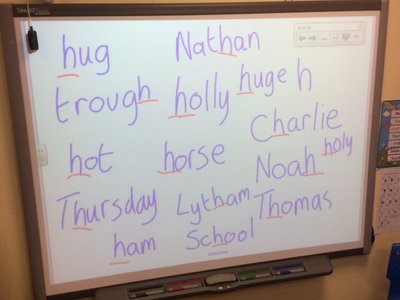 hug
Nathan
trough
holly
huge h
Charlie
hot
horse
holy
Noah
Thursday
Lytham
Thomas
ham
School